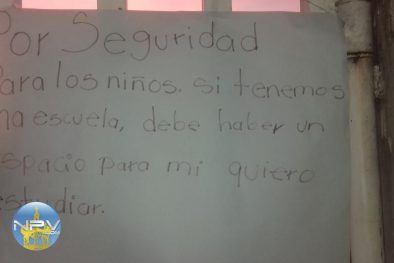 Por Seguridad
Para los niños. si tenemos
una escuela, debe haber un
espacio para mi quiero
estudiar.
NPV